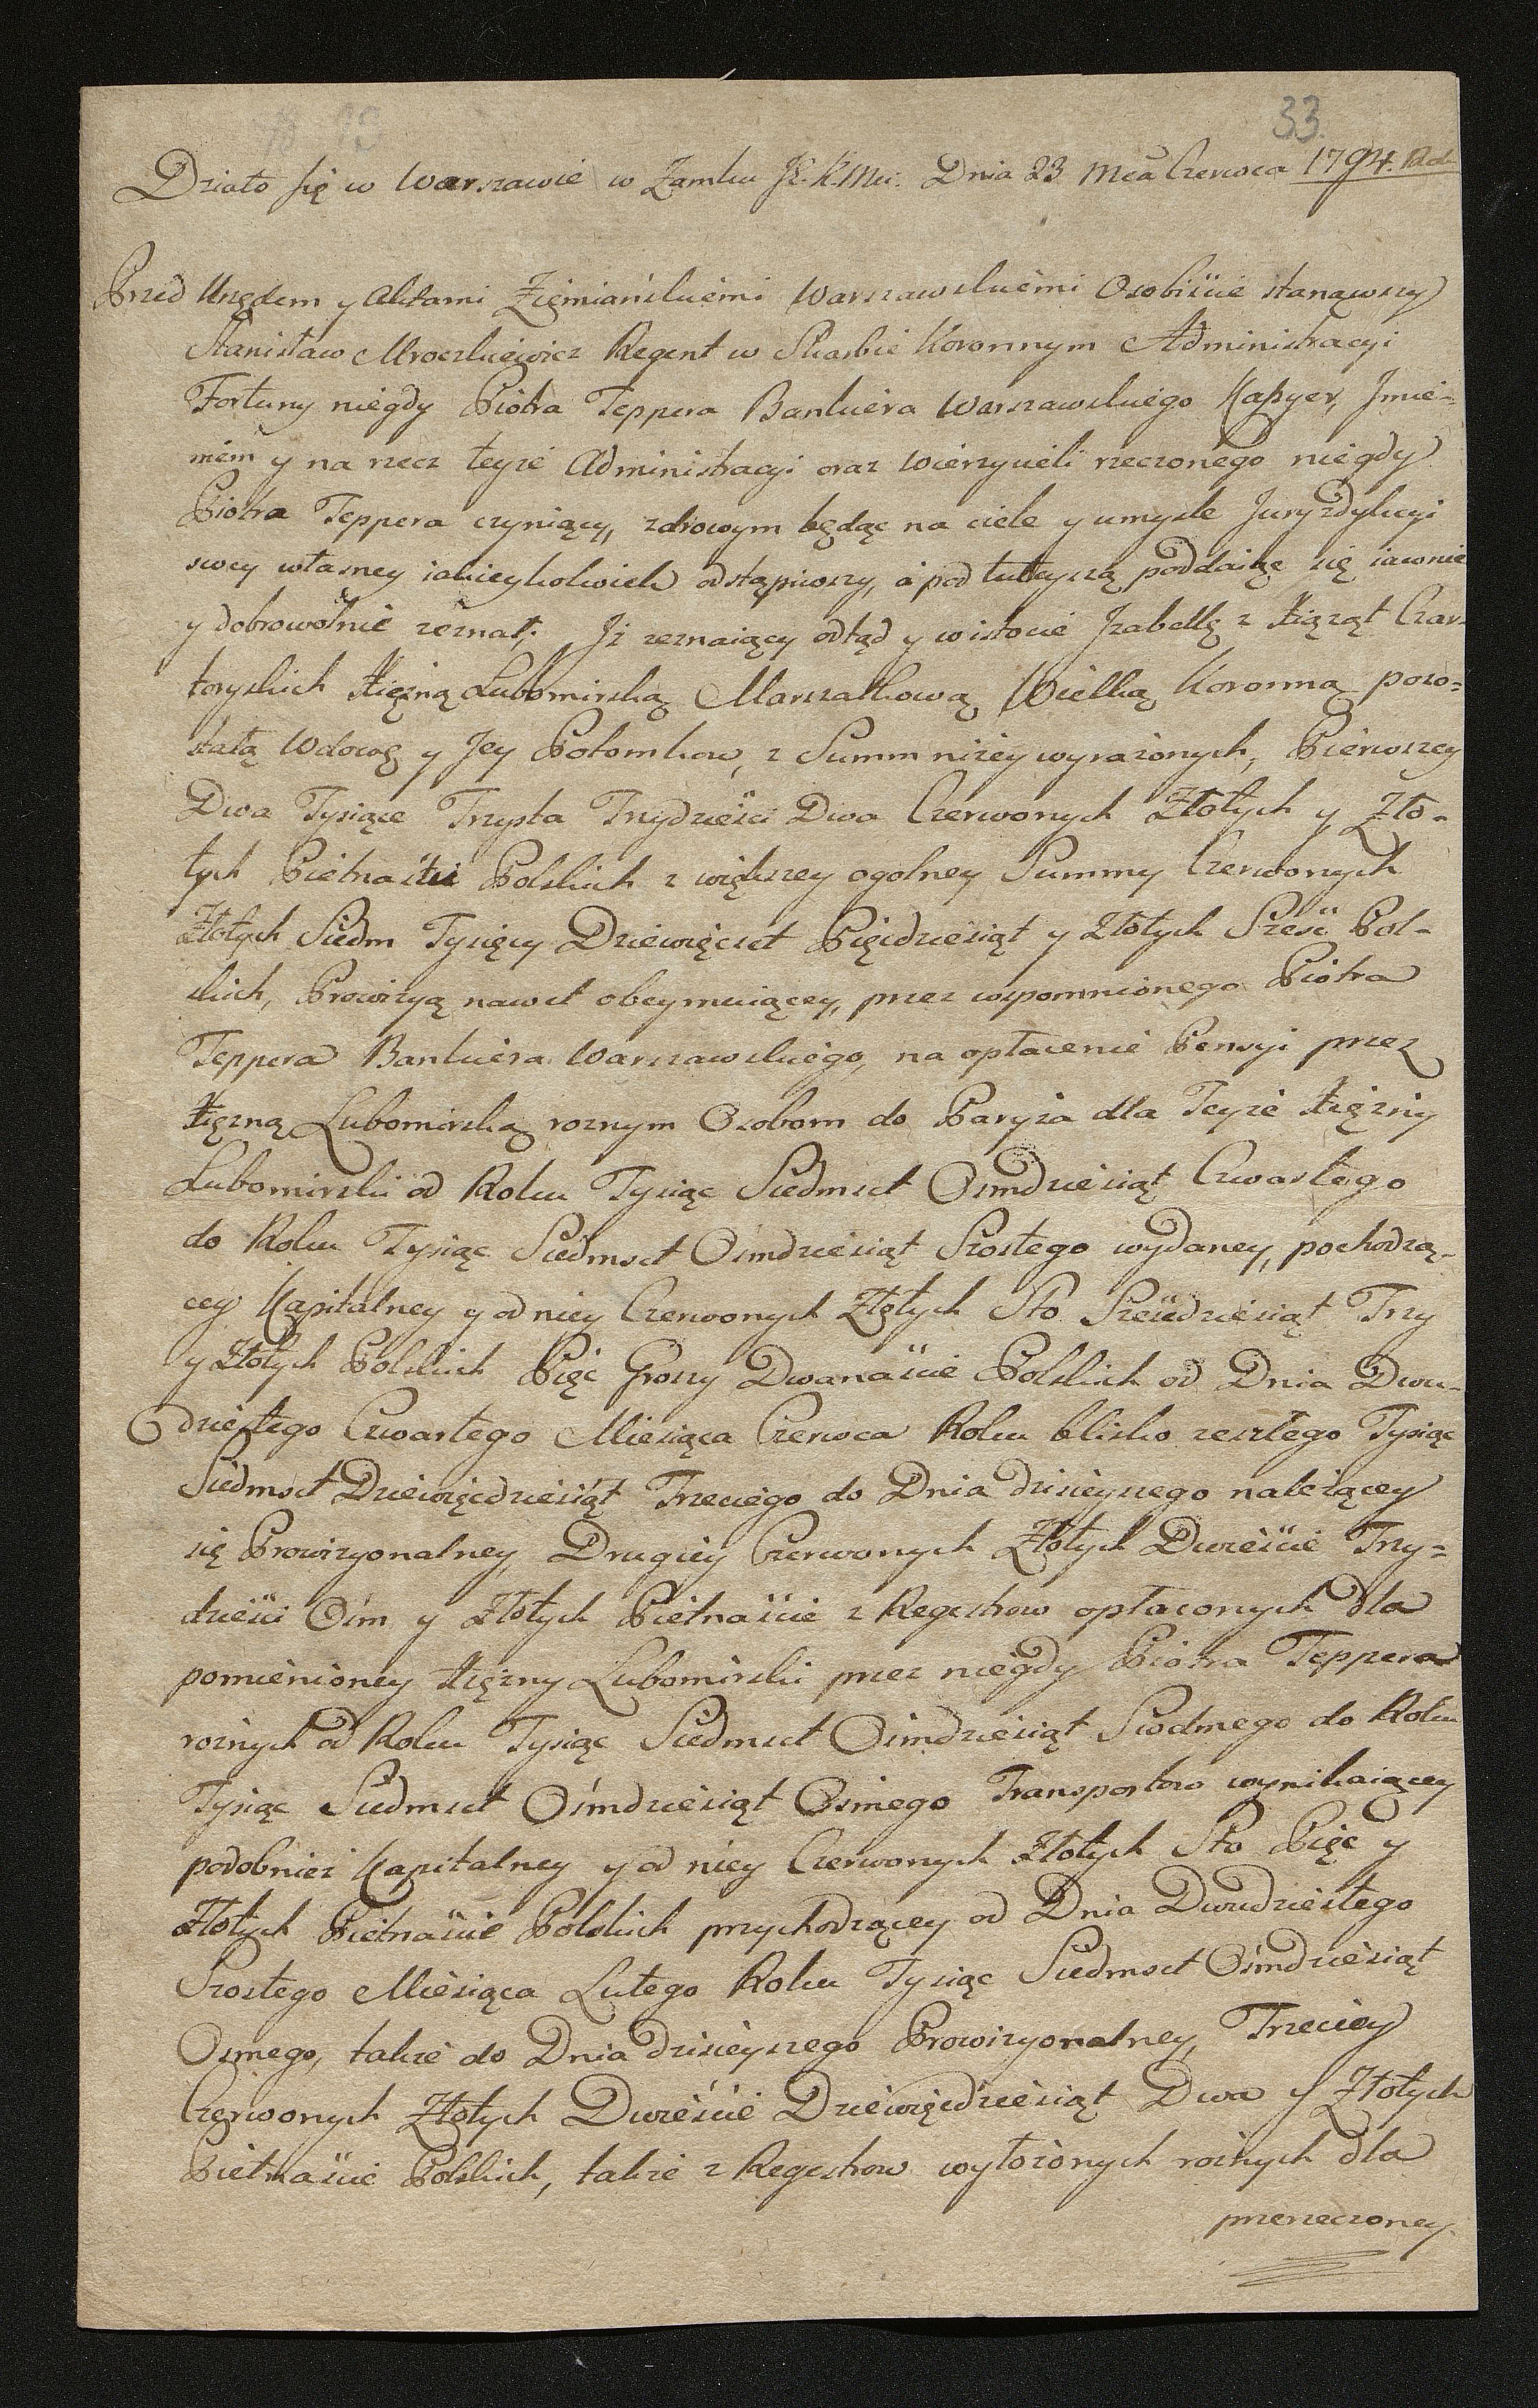 33.
Działo się w Warszawie w Zamku J. K. Mci. Dnia 23 Mca Czerwca 1794. Rok
Przed Urzędem y Aktami Ziemiańskiemi Warszawskiemi Osobiście stanąwszy
Stanisław Mroczkiewicz Regent w Skarbie Koronnym Administracyi
Fortuny niegdy Piotra Teppera Bankiera Warszawskiego Kaßyer, Jmie-
niem y na rzecz teyże Administracyi oraz Wierzycieli rzeczonego niegdy
Piotra Teppera czyniący, zdrowym będąc na ciele y umysle Juryzdykcyi
swey własney iakieykolwiek odstąpiwszy, a pod tuteyszą poddaiąc się iawnie
y dobrowolnie zeznał; Jż zeznaiący odtąd y wistocie Jzabellę z Xiążąt Czar-
toryskich Xiężną Lubomirską Marszałkową Wielką Koronną pozo-
stałą Wdowę y Jey Potomkow, z Summ niżey wyrażonych, Pierwszey
Dwa Tysiące Trzysta Trzydzieści Dwa Czerwonych Złotych y Zło-
tych Pietnaście Polskich z większey ogolney Summy Czerwonych
Złotych Siedm Tysięcy Dziewięcset Pięćdziesiąt y Złotych Sześć Pol-
skich, Prowizyą nawet obeymuiącey, przez wspomnionego Piotra
Teppera Bankiera Warszawskiego, na opłacenie Pensyi przez
Xiężną Lubomirską roznym Osobom do Paryża dla Teyże Xiężny
Lubomirski od Roku Tysiąc Siedmset Osmdziesiąt Czwartego
do Roku Tysiąc Siedmset Osmdziesiąt Szostego wydaney, pochodzą-
cey Kapitalney y od niey Czerwonych Złotych Sto Sześćdziesiąt Trzy
y Złotych Polskich Pięć Groszy Dwanaście Polskich od Dnia Dwu-
dziestego Czwartego Miesiąca Czerwca Roku blisko zeszłego Tysiąc
Siedmset Dziewięćdziesiąt Trzeciego do Dnia dzisieyszego należącey
się Prowizyonalney, Drugiey Czerwonych Złotych Dwieście Trzy-
dzieści Ośm y Złotych Pietnaście z Regestrow opłaconych dla
pomienioney Xiężny Lubomirski przez niegdy Piotra Teppera
rożnych od Roku Tysiąc Siedmset Ośmdziesiąt Siodmego do Roku
Tysiąc Siedmset Ośmdziesiąt Osmego Transportow wynikaiącey
podobnież Kapitalney y od niey Czerwonych Złotych Sto Pięć y
Złotych Pietnaście Polskich przychodzącey od Dnia Dwudziestego
Szostego Miesiąca Lutego Roku Tysiąc Siedmset Ośmdziesiąt
Osmego, także do Dnia dzisieyszego Prowizyonalney, Trzeciey
Czerwonych Złotych Dwieście Dziewięćdziesiąt Dwa y Złotych
Pietnaście Polskich, także z Regestrow wyłożonych rożnych dla
przerzeczoney